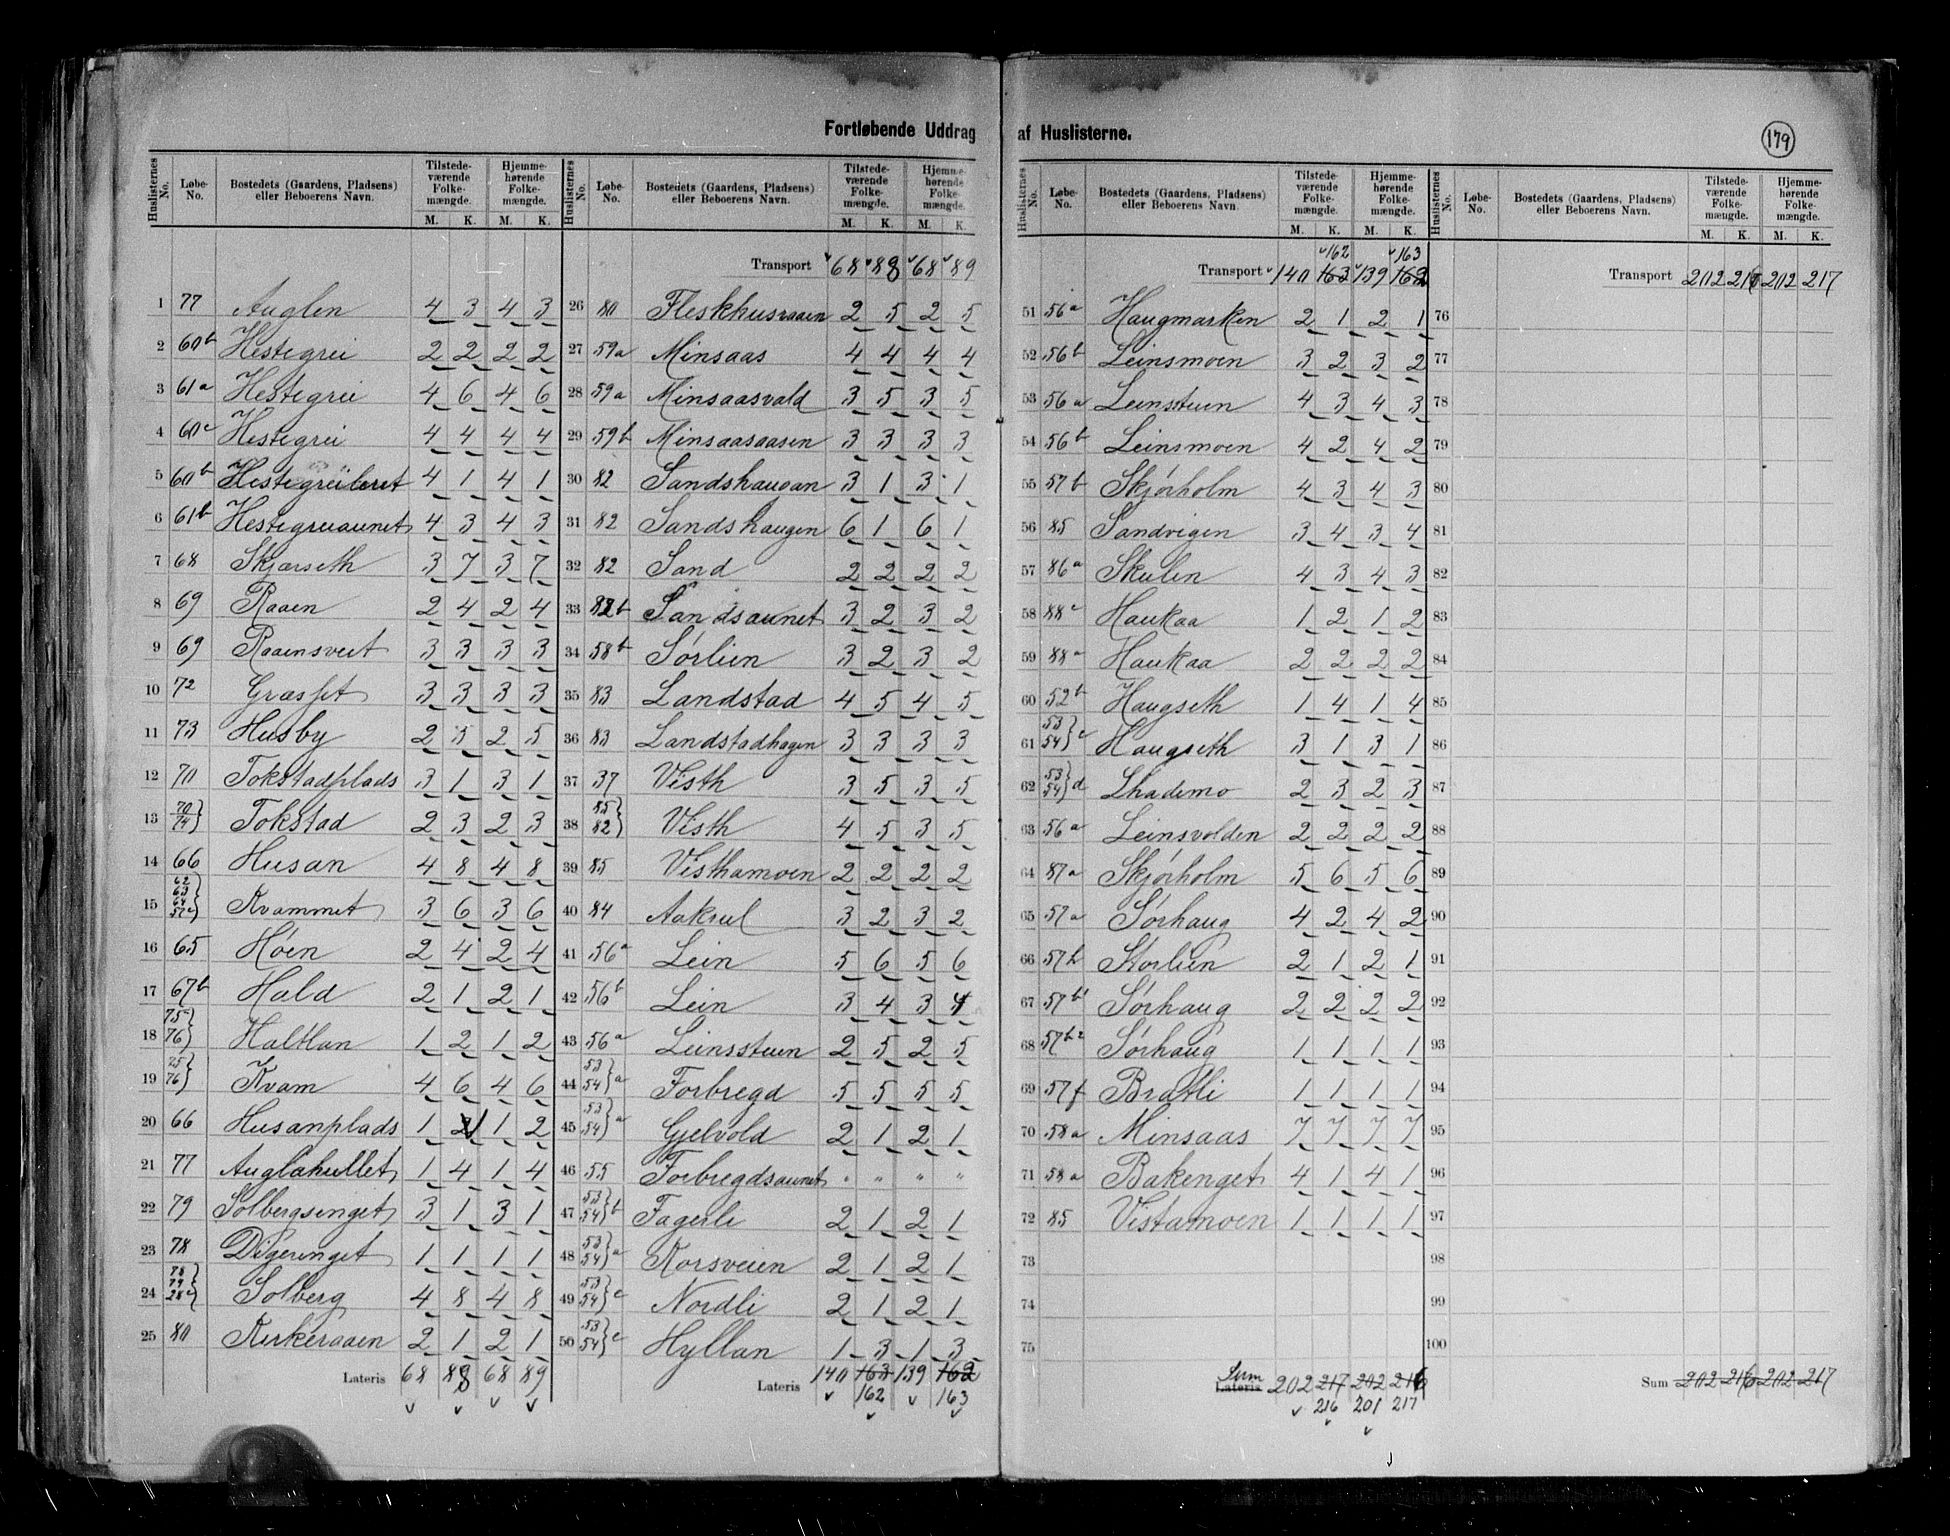 Fortløbende Uddrag af Huslisterne.
179
Huslisternes No. Løbe-No. Bostedets (Gaardens, Pladsens) eller Beboerens Navn. Tilstedeværende Folkemængde. M. K. Hjemmehørende Folkemængde. M. K.
1 77 Auglen 4 3 4 3
2 60b Hestegrei 2 2 2 2
3 61a Hestegrei 4 6 4 6
4 60c Hestegrei 4 4 4 4
5 60b Hestegreileret 4 1 4 1
6 61b Hestegreiaunet 4 3 4 3
7 68 Skjærseth 3 7 3 7
8 69 Raaen 2 4 2 4
9 69 Raaensveet 3 3 3 3
10 72 Græsset 3 3 3 3
11 73 Husby 2 5 2 5
12 70 Tokstadplads 3 1 3 1
13 70 74 } Tokstad 2 3 2 3
14 66 Husan 4 8 4 8
15 62 63 64 57c } Kvammet 3 6 3 6
16 65 Høen 2 4 2 4
17 67b Hald 2 1 2 1
18 75 76 } Haltlan 1 2 1 2
19 75 76 } Kvam 4 6 4 6
20 66 Husanplads 1 1 2
21 77 Auglahullet 1 4 1 4
22 79 Solbergsenget 3 1 3 1
23 78 Digerenget 1 1 1 1
24 78 79 28c } Solberg 4 8 4 8
25 80 Kirkeraaen 2 1 2 1
Lateris 68 88 68 89
Huslisternes No. Løbe-No. Bostedets (Gaardens, Pladsens) eller Beboerens Navn. Tilstedeværende Folkemængde. M. K. Hjemmehørende Folkemængde. M. K.
Transport 68 88 68 89
26 80 Fleskhusraaen 2 5 2 5
27 59a Minsaas 4 4 4 4
28 59a Minsaasvald 3 5 3 5
29 59b Minsaasaasen 3 3 3 3
30 82 Sandshaugan 3 1 3 1
31 82 Sandshaugen 6 1 6 1
32 82 Sand 2 2 2 2
33 82b Sandsaunet 3 2 3 2
34 58b Sørlien 3 2 3 2
35 83 Landstad 4 5 4 5
36 83 Landstadhagen 3 3 3 3
37 37 Visth 3 5 3 5
38 85 82 } Visth 4 5 3 5
39 85 Visthamoen 2 2 2 2
40 84 Aaksul 3 2 3 2
41 56a Lein 5 6 5 6
42 56b Lein 3 4 3 4
43 56a Leinssteen 2 5 2 5
44 53 54 } a Forbregd 5 5 5 5
45 53 54 } a Gjelvold 2 1 2 1
46 55 Forbregdsaunet " " " "
47 53 54 } b Fagerli 2 1 2 1
48 53 54 } a Korsveien 2 1 2 1
49 53 54 } c Nordli 2 1 2 1
50 53 54 } c Hyllan 1 3 1 3
Lateris 140 163 139 162
162 163
Huslisternes No. Løbe-No. Bostedets (Gaardens, Pladsens) eller Beboerens Navn. Tilstedeværende Folkemængde. M. K. Hjemmehørende Folkemængde. M. K.
162 163
Transport 140 163 139 162
51 56a Haugmarken 2 1 2 1
52 56b Leinsmoen 3 2 3 2
53 56a Leinsteen 4 3 4 3
54 56b Leinsmoen 4 2 4 2
55 57b Skjørholm 4 3 4 3
56 85 Sandvigen 3 4 3 4
57 86a Skulen 4 3 4 3
58 88c Haukaa 1 2 1 2
59 88a Haukaa 2 2 2 2
60 52b Haugseth 1 4 1 4
61 53 54 } c Haugseth 3 1 3 1
62 53 54 } d Lhademo 2 3 2 3
63 56a Leinsvolden 2 2 2 2
64 87a Skjørholm 5 6 5 6
65 57a Sørhaug 4 2 4 2
66 57b Storlien 2 1 2 1
67 57b1 Sørhaug 2 2 2 2
68 57b2 Sørhaug 1 1 1 1
69 57f Bratli 1 1 1 1
70 58a Minsaas 7 7 7 7
71 58a Bakenget 4 1 4 1
72 85 Vistamoen 1 1 1 1
73
74
75
Sum
Lateris 202 217 202 216
216 201 217
Huslisternes No. Løbe-No. Bostedets (Gaardens, Pladsens) eller Beboerens Navn. Tilstedeværende Folkemængde. M. K. Hjemmehørende Folkemængde. M. K.
Transport 202 216 202 217
76
77
78
79
80
81
82
83
84
85
86
87
88
89
90
91
92
93
94
95
96
97
98
99
100
Sum 202 216 202 217